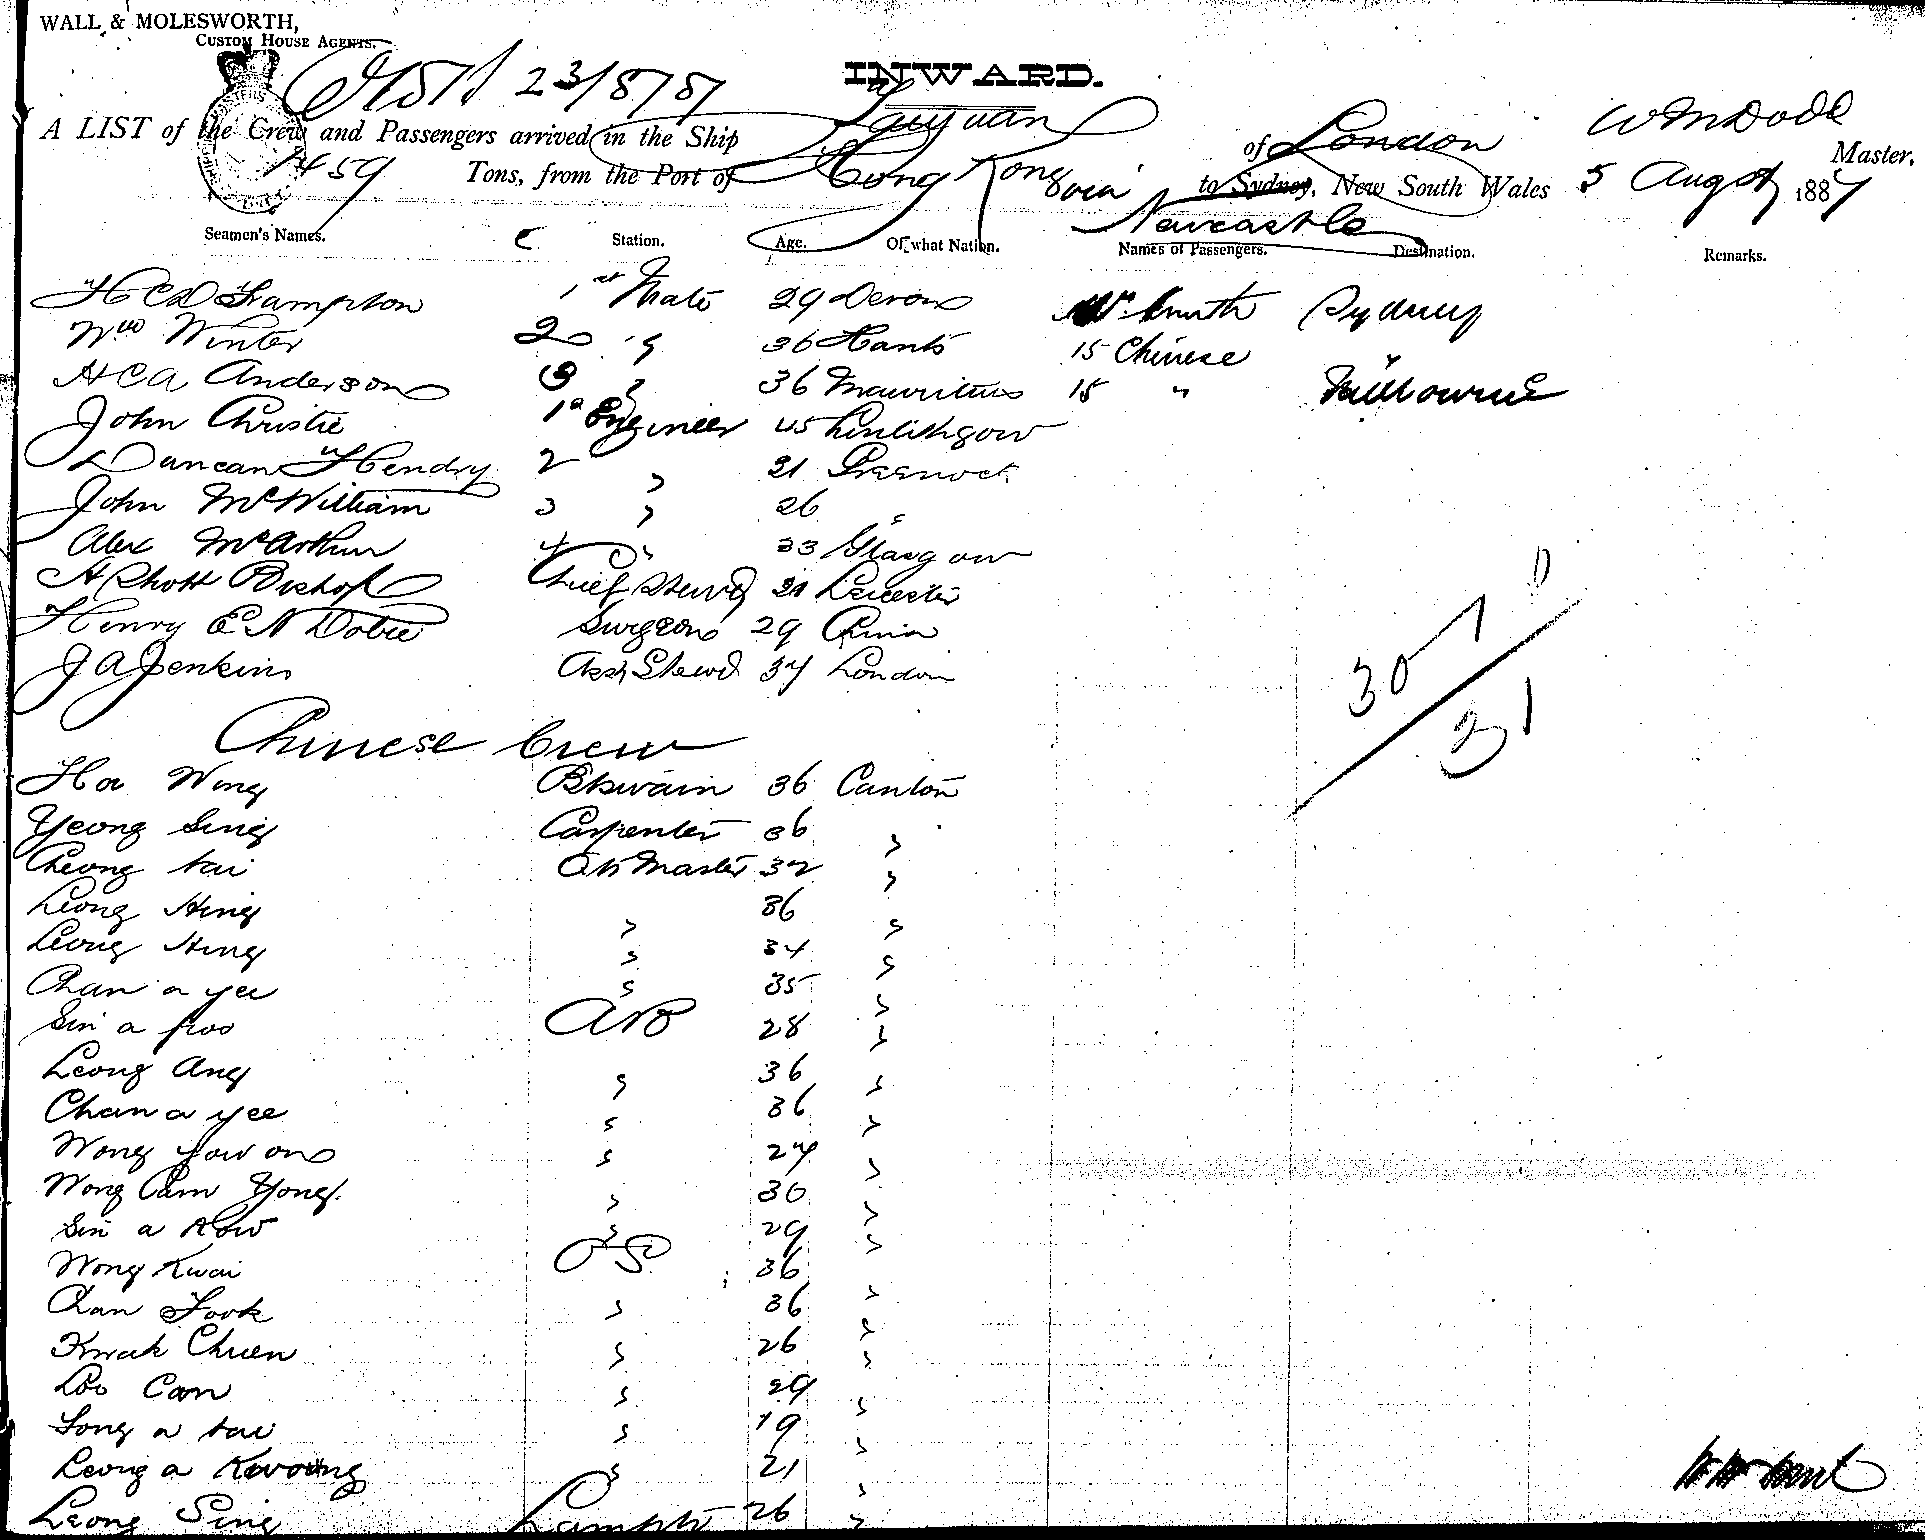 WALL & MOLESWORTH,
CUSTOM HOUSE AGENTS.
23/8/87
INWARD.
A LIST of the Crew and Passengers arrived in the Ship Taiyuan of London W M Dodd Master,
1459 Tons, from the Port of Hong Kong via Newcastle to Sydney, New South Wales 5 August 1887
Seamen's Names. Station. Age. Of what Nation. Names of Passengers. Destination. Remarks.
H C D Frampton 1st Mate 29 Devon Mr Smith Sydney
Wm Winter 2 " 36 Hants 15 Chinese "
H C A Anderson 3 " 36 Mauritius 15 " Melbourne
John Christie 1st Engineer 45 Linlithgow
Duncan Hendry 2 " 31 Greenock
John McWilliam 3 " 26 "
Alex McArthur 4 " 33 Glasgow
Bishop Chief Stewd 31 Leicester
Henry E N Dobie Surgeon 29 China
J A Jenkins Asst Stewd 37 London
30 1
31
Chinese Crew
Ho Wong Btswain 36 Canton
Yeong Sing Carpenter 36 "
Cheong tai Qtr Master 32 "
Leong Hing " 36 "
Leong Hing " 34 "
Chan a yee " 35 "
Sin a foo AB 28 "
Leong Ang " 36 "
Chan a yee " 36 "
Wong yow on " 27 "
Wong Cam Yong " 30 "
Sin a Kow " 29 "
Wong Kwai OS 36 "
Chan Fook " 36 "
Kwak Chuen " 26 "
Loo Can " 29 "
Song a tai " 19 "
Leong a Kwoong " 21 "
Leong Sing Lamptr 26 "